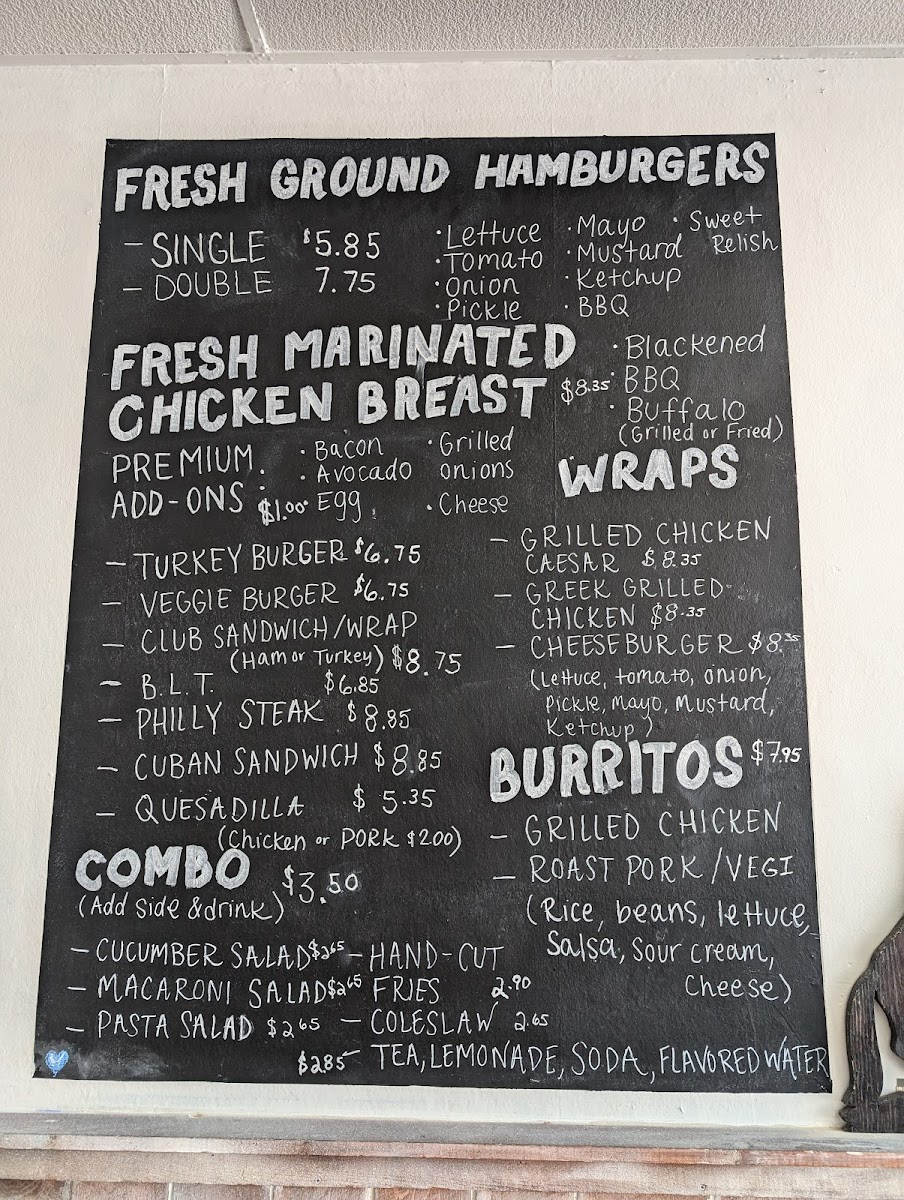 FRESH GROUND HAMBURGERS
- SINGLE $5.85
- DOUBLE 7.75
· Lettuce
· Tomato
· Onion
· Pickle
· Mayo
· Mustard
· Ketchup
· BBQ
· Sweet
Relish
FRESH MARINATED
CHICKEN BREAST $8.35
· Blackened
· BBQ
· Buffalo
(Grilled or Fried)
PREMIUM
ADD-ONS : $1.00
· Bacon
· Avocado
· Egg
· Grilled
onions
· Cheese
- TURKEY BURGER $6.75
- VEGGIE BURGER $6.75
- CLUB SANDWICH/WRAP
(Ham or Turkey) $8.75
- B.L.T. $6.85
- PHILLY STEAK $8.85
- CUBAN SANDWICH $8.85
- QUESADILLA $5.35
(Chicken or PORK $2.00)
WRAPS
- GRILLED CHICKEN
CAESAR $8.35
- GREEK GRILLED
CHICKEN $8.35
- CHEESEBURGER $8.35
(Lettuce, tomato, onion,
Pickle, Mayo, Mustard,
Ketchup)
BURRITOS $7.95
- GRILLED CHICKEN
- ROAST PORK/VEGI
(Rice, beans, lettuce,
Salsa, Sour cream,
Cheese)
COMBO $3.50
(Add Side & drink)
- CUCUMBER SALAD $2.65
- MACARONI SALAD $2.65
- PASTA SALAD $2.65
- HAND-CUT
FRIES 2.90
- COLESLAW 2.65
$2.85 - TEA, LEMONADE, SODA, FLAVORED WATER